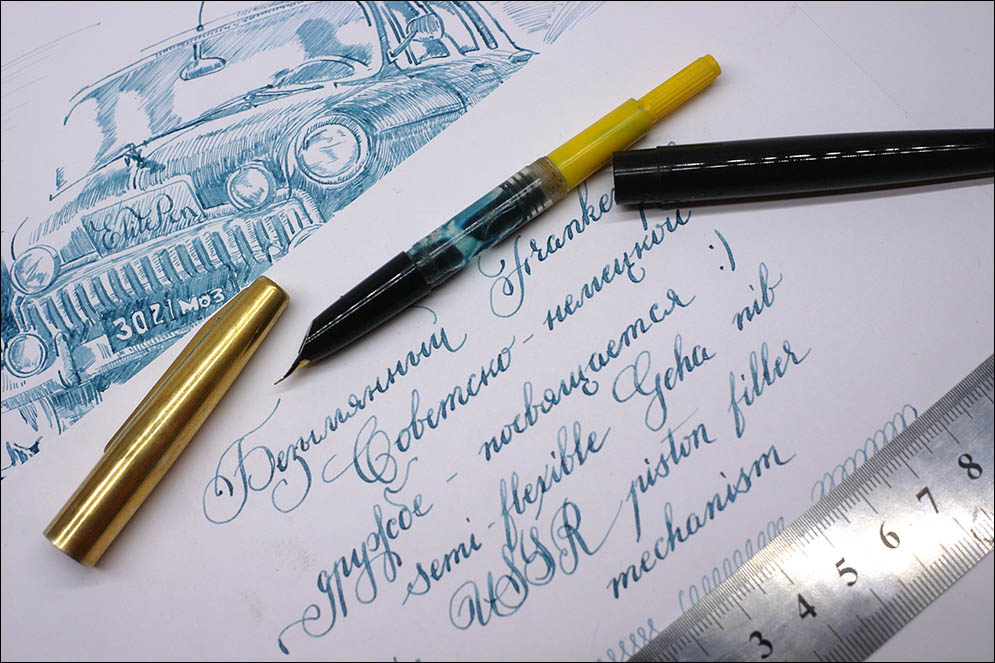 ElitePen
3021 МОЗ
Безимянный Franken
Советско-немецкой
дружбе - посвящается :)
semi-flexible Geha nib
USSR piston filler
mechanism
3 4 5 6 7 8